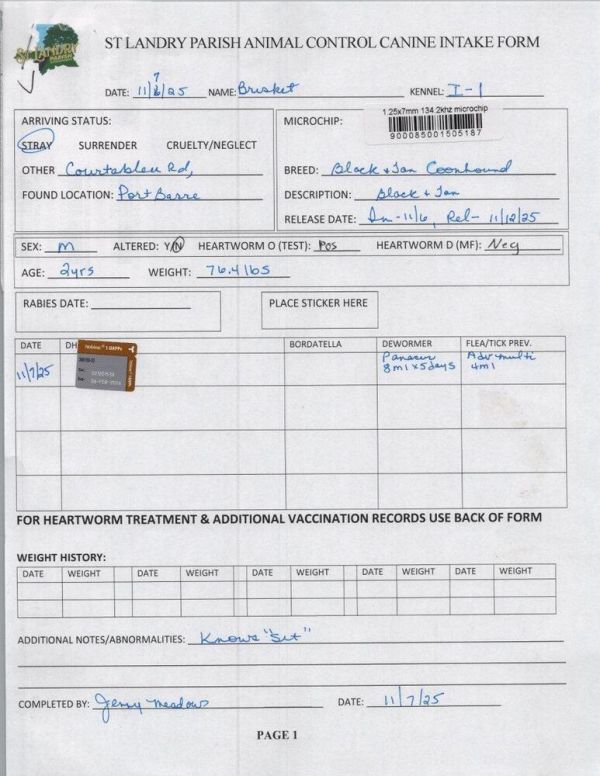 ST LANDRY
PARISH
ST LANDRY PARISH ANIMAL CONTROL CANINE INTAKE FORM
DATE: 11/7/25 NAME: Brisket KENNEL: I-1
ARRIVING STATUS:
STRAY SURRENDER CRUELTY/NEGLECT
OTHER Courtableu Rd,
FOUND LOCATION: Port Barre
MICROCHIP:
1.25x7mm 134.2khz microchip
900085001505187
BREED: Black & Tan Coonhound
DESCRIPTION: Black & Tan
RELEASE DATE: Im-11/6, Rel- 11/12/25
SEX: M ALTERED: Y/N HEARTWORM O (TEST): Pos HEARTWORM D (MF): Neg
AGE: 2yrs WEIGHT: 76.4 lbs
RABIES DATE:
PLACE STICKER HERE
DATE DH BORDATELLA DEWORMER FLEA/TICK PREV.
11/7/25 Panacur Adv multi
8ml x 5days 4ml
FOR HEARTWORM TREATMENT & ADDITIONAL VACCINATION RECORDS USE BACK OF FORM
WEIGHT HISTORY:
DATE WEIGHT DATE WEIGHT DATE WEIGHT DATE WEIGHT DATE WEIGHT
ADDITIONAL NOTES/ABNORMALITIES: Knows "Sit"
COMPLETED BY: Jenny Meadows DATE: 11/7/25
PAGE 1